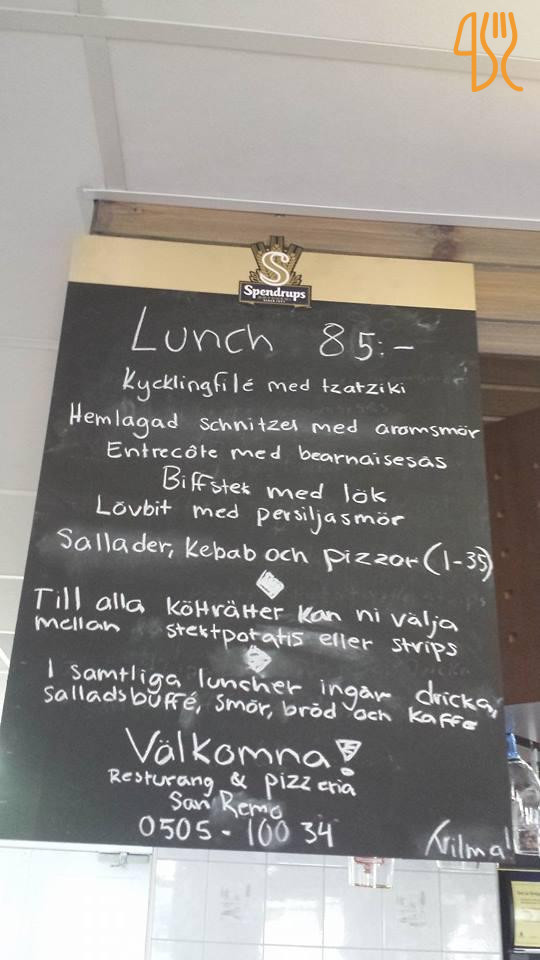 Spendrups
Lunch 85:-
Kycklingfilé med tzatziki
Hemlagad schnitzel med aromsmör
Entrecôte med bearnaisesås
Biffstek med lök
Lövbit med persiljasmör
Sallader, kebab och pizzor (1-35)
Till alla kötträtter kan ni välja
mellan stektpotatis eller strips
I samtliga luncher ingår dricka,
salladsbuffé, smör, bröd och kaffe
Välkomna!
Resturang & pizzeria
San Remo
0505-100 34
Vilma